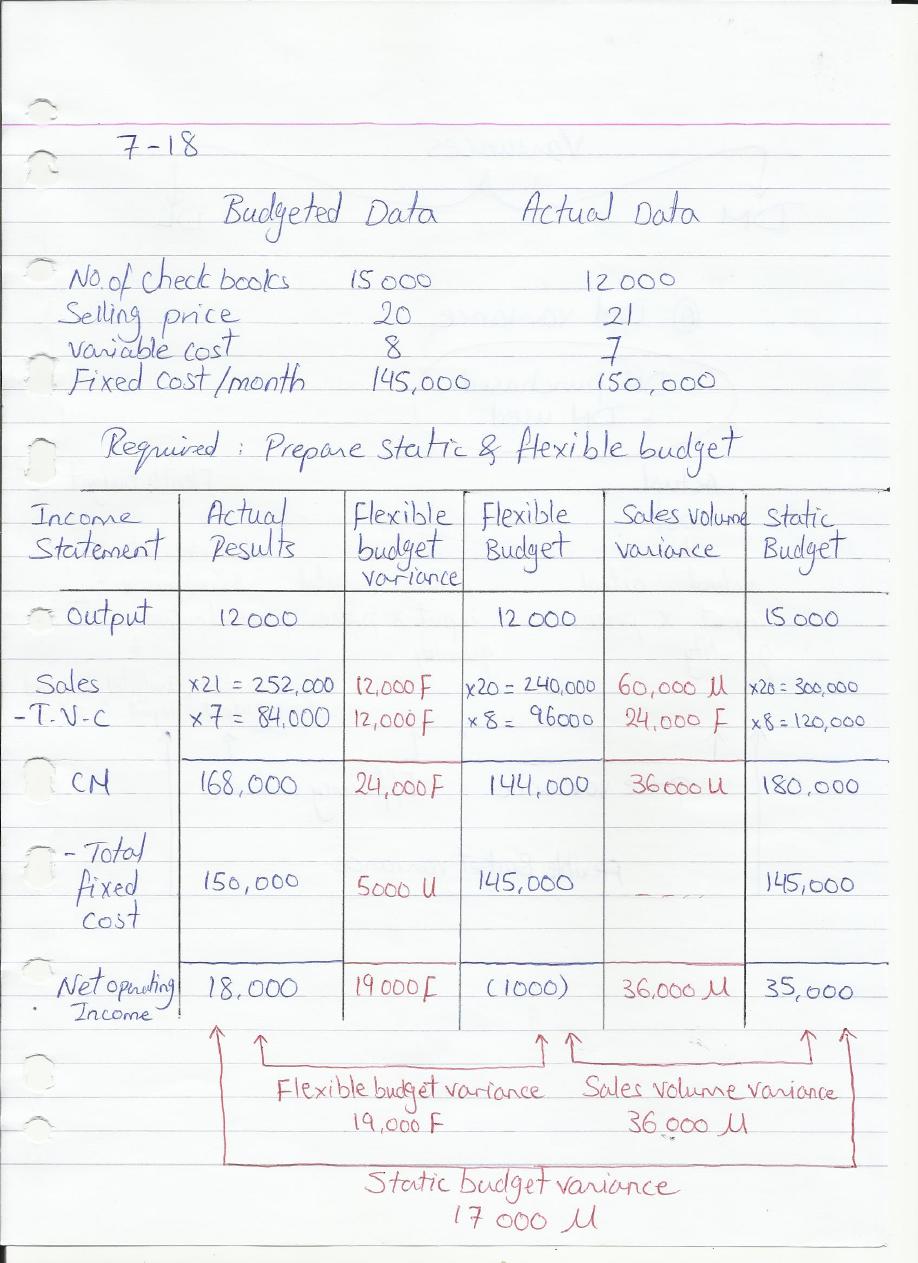 7-18
Budgeted Data Actual Data
No. of check books 15000 12000
Selling price 20 21
Variable cost 8 7
Fixed cost/month 145,000 150,000
Required : Prepare static & flexible budget
Income Actual Flexible Flexible Sales volume Static
Statement Results budget Budget variance Budget
variance
Output 12000 12000 15000
Sales x21 = 252,000 12,000 F x20 = 240,000 60,000 U x20 = 300,000
- T.V.C x7 = 84,000 12,000 F x8 = 96000 24,000 F x8 = 120,000
CM 168,000 24,000 F 144,000 36000 U 180,000
- Total
fixed 150,000 5000 U 145,000 - - - - 145,000
cost
Net operating 18,000 19000 F (1000) 36,000 U 35,000
Income
Flexible budget variance Sales volume variance
19,000 F 36000 U
Static budget variance
17000 U